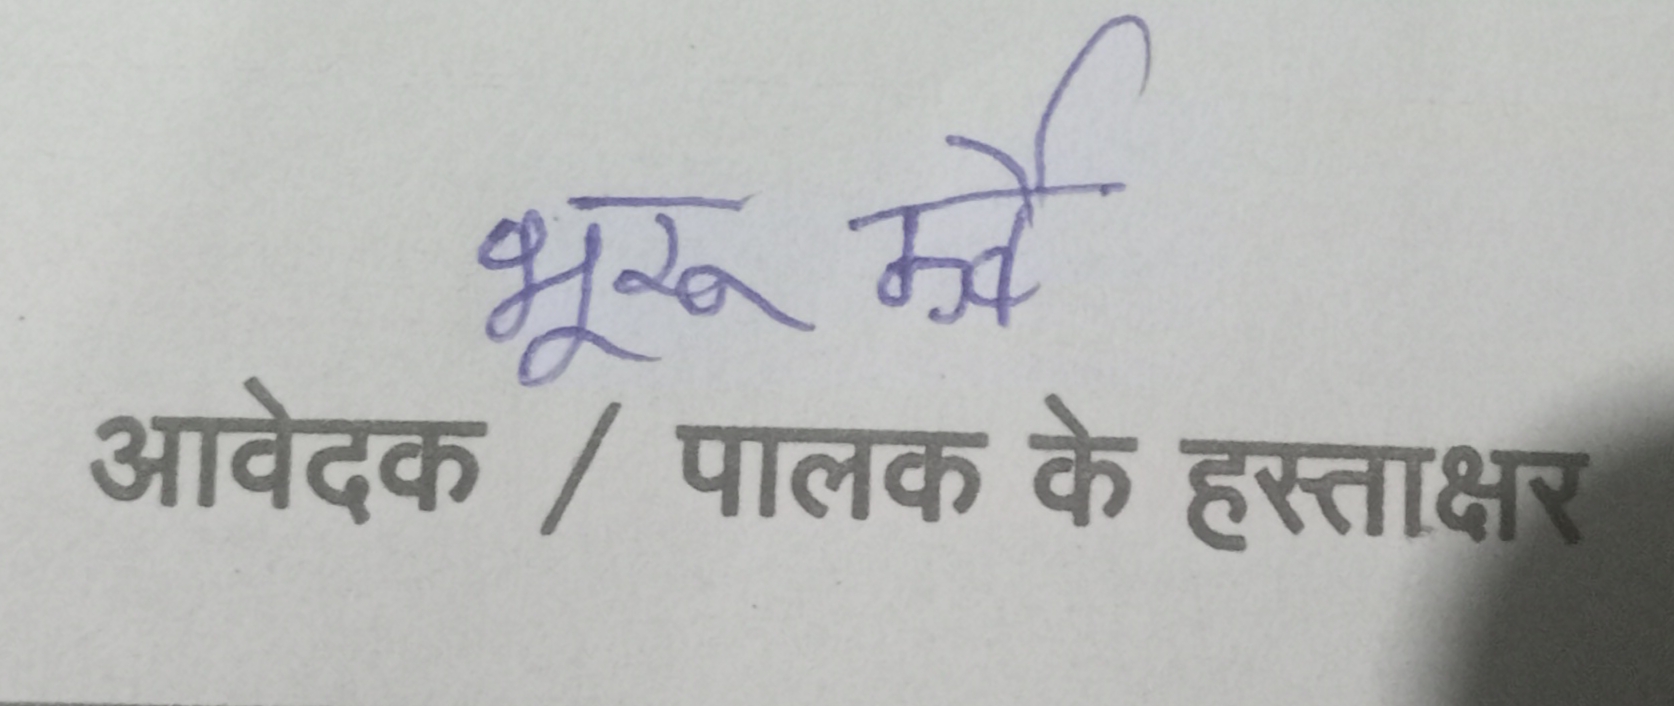 भूरू
आवेदक / पालक के हस्ताक्षर